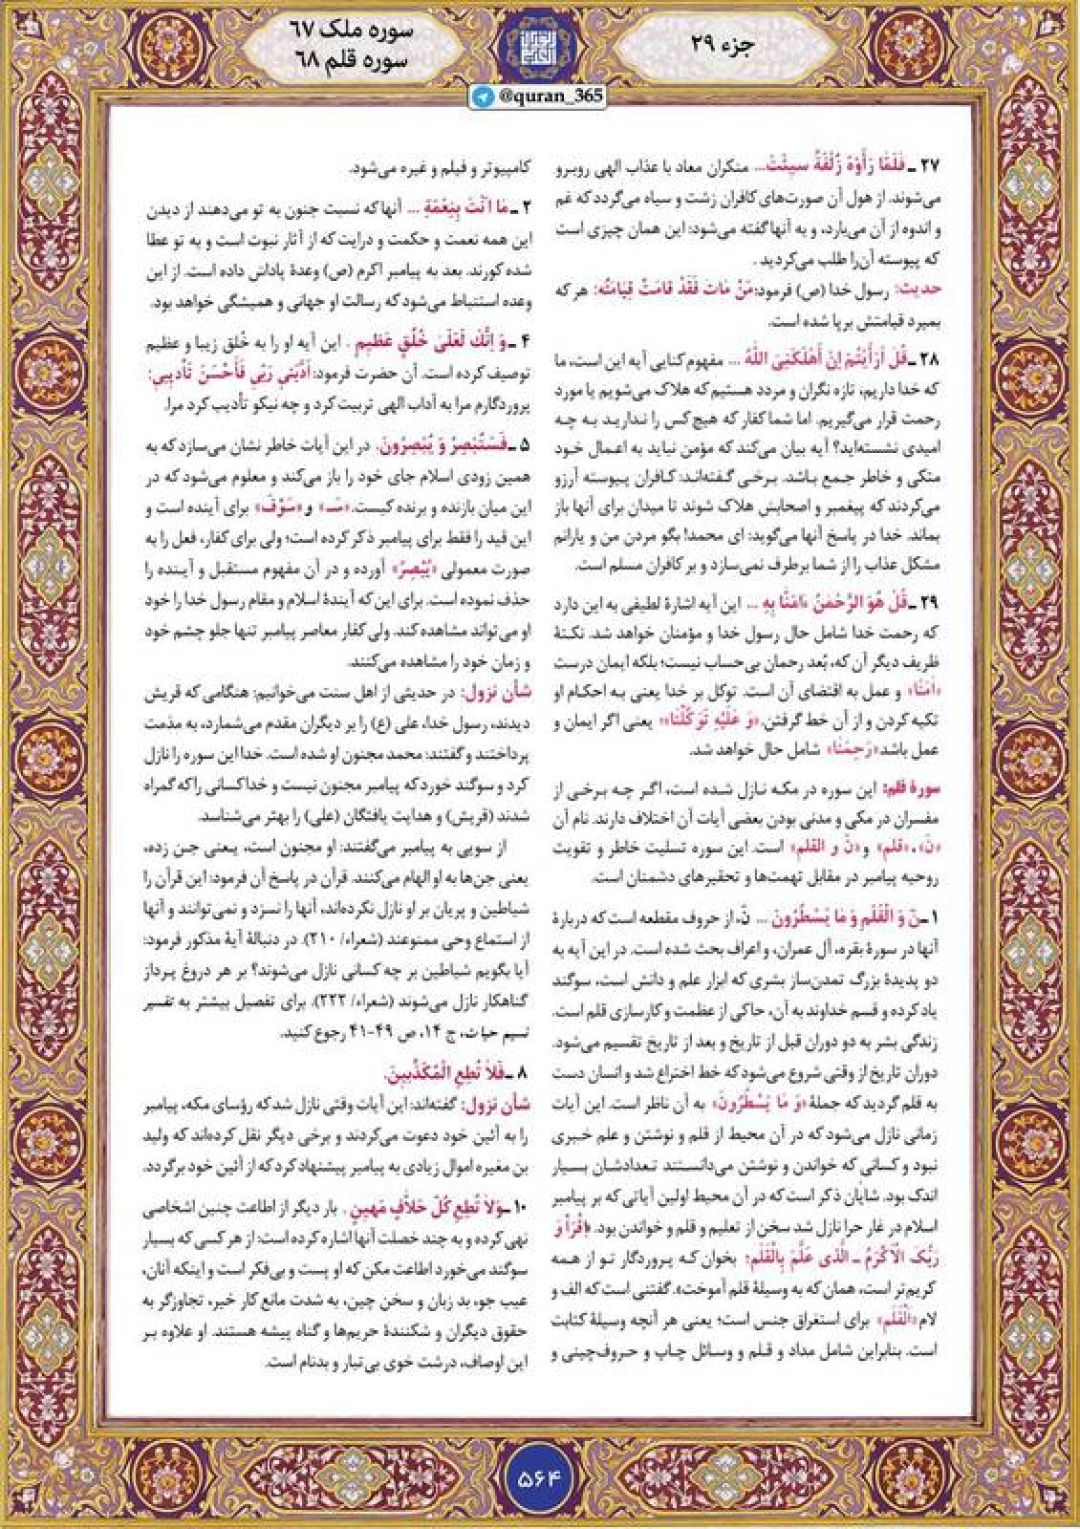 جزء ۲۹
سوره ملک ۶۷
سوره قلم ۶۸
@quran_365
۲۷ ـ فَلَمَّا رَأَوْهُ زُلْفَةً سیئَتْ... منکران معاد با عذاب الهی روبرو
می‌شوند. از هول آن صورت‌های کافران زشت و سیاه می‌گردد که غم
و اندوه از آن می‌بارد، و به آنها گفته می‌شود: این همان چیزی است
که پیوسته آن‌را طلب می‌کردید .
حدیث: رسول خدا (ص) فرمود: مَنْ مَاتَ فَقَدْ قامَتْ قِیامَتُه: هر که
بمیرد قیامتش برپا شده است.
۲۸ ـ قُلْ أَرَأَیْتُمْ اِنْ أَهْلَکَنِیَ اللّهُ ... مفهوم کنایی آیه این است، ما
که خدا داریم، تازه نگران و مردد هستیم که هلاک می‌شویم یا مورد
رحمت قرار می‌گیریم. اما شما کفار که هیچ‌کس را ندارید به چه
امیدی نشسته‌اید؟ آیه بیان می‌کند که مؤمن نباید به اعمال خود
متکی و خاطر جمع باشد. برخی گفته‌اند: کافران پیوسته آرزو
می‌کردند که پیغمبر و اصحابش هلاک شوند تا میدان برای آنها باز
بماند. خدا در پاسخ آنها می‌گوید: ای محمد! بگو مردن من و یارانم
مشکل عذاب را از شما برطرف نمی‌سازد و بر کافران مسلم است.
۲۹ ـ قُلْ هُوَ الرَّحْمَنُ ءَامَنَّا بِهِ ... این آیه اشارهٔ لطیفی به این دارد
که رحمت خدا شامل حال رسول خدا و مؤمنان خواهد شد. نکتهٔ
ظریف دیگر آن که، بُعد رحمان بی‌حساب نیست؛ بلکه ایمان درست
«اَمَنَّا» و عمل به اقتضای آن است. توکل بر خدا یعنی به احکام او
تکیه کردن و از آن خط گرفتن. «وَ عَلَیْهِ تَوَکَّلْنَا» یعنی اگر ایمان و
عمل باشد «رَحِمَنَا» شامل حال خواهد شد.
سورهٔ قلم: این سوره در مکه نازل شده است، اگر چه برخی از
مفسران در مکی و مدنی بودن بعضی آیات آن اختلاف دارند. نام آن
«نَ»، «قلم» و «نَ و القلم» است. این سوره تسلیت خاطر و تقویت
روحیه پیامبر در مقابل تهمت‌ها و تحقیرهای دشمنان است.
۱ ـ نَ وَ الْقَلَمِ وَ مَا یَسْطُرُونَ ... نَ، از حروف مقطعه است که دربارهٔ
آنها در سورهٔ بقره، آل عمران، و اعراف بحث شده است. در این آیه به
دو پدیدهٔ بزرگ تمدن‌ساز بشری که ابزار علم و دانش است، سوگند
یاد کرده و قسم خداوند به آن، حاکی از عظمت و کارسازی قلم است.
زندگی بشر به دو دوران قبل از تاریخ و بعد از تاریخ تقسیم می‌شود.
دوران تاریخ از وقتی شروع می‌شود که خط اختراع شد و انسان دست
به قلم گردید که جملهٔ «وَ مَا یَسْطُرُونَ» به آن ناظر است. این آیات
زمانی نازل می‌شود که در آن محیط از قلم و نوشتن و علم خبری
نبود و کسانی که خواندن و نوشتن می‌دانستند تعدادشان بسیار
اندک بود. شایان ذکر است که در آن محیط اولین آیاتی که بر پیامبر
اسلام در غار حرا نازل شد سخن از تعلیم و قلم و خواندن بود. «إقْرَأ وَ
رَبُّکَ الْاَکْرَمُ ـ الَّذی عَلَّمَ بِالْقَلَمِ: بخوان که پروردگار تو از همه
کریم‌تر است، همان که به وسیلهٔ قلم آموخت». گفتنی است که الف و
لام «اَلْقَلَم» برای استغراق جنس است؛ یعنی هر آنچه وسیلهٔ کتابت
است. بنابراین شامل مداد و قلم و وسائل چاپ و حروف‌چینی و
کامپیوتر و فیلم و غیره می‌شود.
۲ ـ مَا اَنْتَ بِنِعْمَةِ ... آنها که نسبت جنون به تو می‌دهند از دیدن
این همه نعمت و حکمت و درایت که از آثار نبوت است و به تو عطا
شده کورند. بعد به پیامبر اکرم (ص) وعدهٔ پاداش داده است. از این
وعده استنباط می‌شود که رسالت او جهانی و همیشگی خواهد بود.
۴ ـ وَ اِنَّکَ لَعَلَیٰ خُلُقٍ عَظِیمٍ . این آیه او را به خُلق زیبا و عظیم
توصیف کرده است. آن حضرت فرمود: أَدَّبَنی رَبّی فَأَحْسَنَ تَأدیبی:
پروردگارم مرا به آداب الهی تربیت کرد و چه نیکو تأدیب کرد مرا.
۵ ـ فَسَتُبْصِرُ وَ یُبْصِرُونَ. در این آیات خاطر نشان می‌سازد که به
همین زودی اسلام جای خود را باز می‌کند و معلوم می‌شود که در
این میان بازنده و برنده کیست. «سَـ» و «سَوْفَ» برای آینده است و
این قید را فقط برای پیامبر ذکر کرده است؛ ولی برای کفار، فعل را به
صورت معمولی «یُبْصِرُ» آورده و در آن مفهوم مستقبل و آینده را
حذف نموده است. برای این که آیندهٔ اسلام و مقام رسول خدا را خود
او می‌تواند مشاهده کند. ولی کفار معاصر پیامبر تنها جلو چشم خود
و زمان خود را مشاهده می‌کنند.
شأن نزول: در حدیثی از اهل سنت می‌خوانیم: هنگامی که قریش
دیدند، رسول خدا، علی (ع) را بر دیگران مقدم می‌شمارد، به مذمت
پرداختند و گفتند: محمد مجنون او شده است. خدا این سوره را نازل
کرد و سوگند خورد که پیامبر مجنون نیست و خدا کسانی را که گمراه
شدند (قریش) و هدایت یافتگان (علی) را بهتر می‌شناسد.
از سویی به پیامبر می‌گفتند: او مجنون است، یعنی جن زده،
یعنی جن‌ها به او الهام می‌کنند. قرآن در پاسخ آن فرمود: این قرآن را
شیاطین و پریان بر او نازل نکرده‌اند، آنها را نسزد و نمی‌توانند و آنها
از استماع وحی ممنوعند (شعراء/ ۲۱۰). در دنبالهٔ آیهٔ مذکور فرمود:
آیا بگویم شیاطین بر چه کسانی نازل می‌شوند؟ بر هر دروغ پرداز
گناهکار نازل می‌شوند (شعراء/ ۲۲۲). برای تفصیل بیشتر به تفسیر
نسیم حیات، ج ۱۴، ص ۴۹-۴۱ رجوع کنید.
۸ ـ فَلاَ تُطِعِ الْمُکَذِّبِینَ.
شأن نزول: گفته‌اند: این آیات وقتی نازل شد که رؤسای مکه، پیامبر
را به آئین خود دعوت می‌کردند و برخی دیگر نقل کرده‌اند که ولید
بن مغیره اموال زیادی به پیامبر پیشنهاد کرد که از آئین خود برگردد.
۱۰ ـ وَلاَ تُطِعْ کُلَّ حَلاَّفٍ مَهِینٍ . بار دیگر از اطاعت چنین اشخاصی
نهی کرده و به چند خصلت آنها اشاره کرده است: از هر کسی که بسیار
سوگند می‌خورد اطاعت مکن که او پست و بی‌فکر است و اینکه آنان،
عیب جو، بد زبان و سخن چین، به شدت مانع کار خیر، تجاوزگر به
حقوق دیگران و شکنندهٔ حریم‌ها و گناه پیشه هستند. او علاوه بر
این اوصاف، درشت خوی بی‌تبار و بدنام است.
۵۶۴